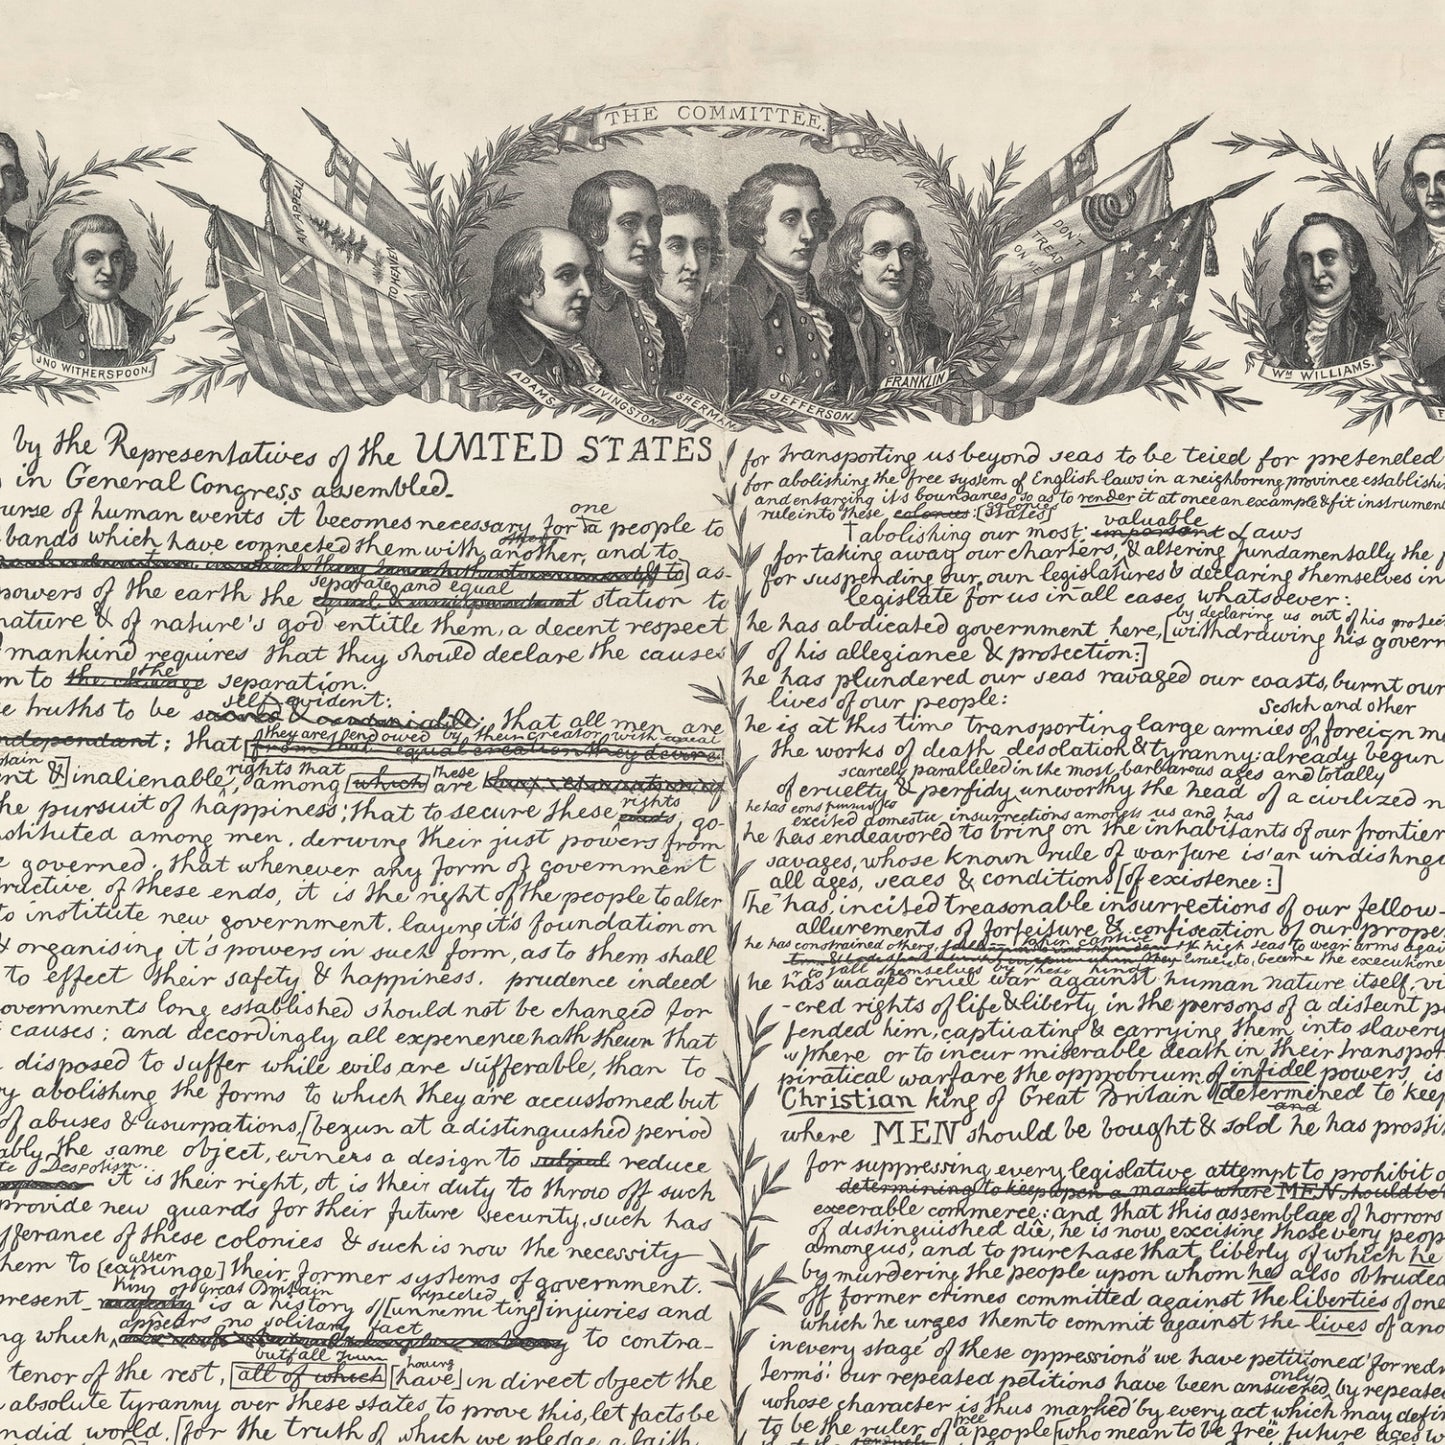 THE COMMITTEE.
AN APPEAL
TO HEAVEN
DON'T
TREAD
ON ME
JNO WITHERSPOON.
ADAMS.
LIVINGSTON
SHERMAN
JEFFERSON.
FRANKLIN
Wm WILLIAMS.
by the Representatives of the UNITED STATES
in General Congress assembled.
urse of human events it becomes necessary for a people to
one
bands which have connected them with another, and to
as-
separate and equal
powers of the earth the station to
nature & of nature's god entitle them, a decent respect
mankind requires that they should declare the causes
the
m to the change separation.
self evident:
e truths to be sacred & undeniable; that all men are
they are endowed by their creator with
ndependant; that from that equal creation they derive
rights that these
nt &] inalienable, among [which] are
rights
he pursuit of happiness; that to secure these ends, go-
nstituted among men, deriving their just powers from
e governed; that whenever any form of government
ructive of these ends, it is the right of the people to alter
to institute new government, laying it's foundation on
& organising it's powers in such form, as to them shall
to effect their safety & happiness. prudence indeed
overnments long established should not be changed for
causes: and accordingly all experience hath shewn that
disposed to suffer while evils are sufferable, than to
ry abolishing the forms to which they are accustomed but
of abuses & usurpations, [begun at a distinguished period
ably the same object, evinces a design to subject reduce
te Despotism.
it is their right, it is their duty to throw off such
provide new guards for their future security. such has
fferance of these colonies & such is now the necessity
alter
hem to [expunge] their former systems of government.
King of Great Britain repeated
present majesty is a history of [unremitting] injuries and
appears no solitary fact
ng which, to contra-
but all have having
tenor of the rest, [all of which] [have] in direct object the
absolute tyranny over these states. to prove this, let facts be
ndid world, [for the truth of which we pledge a faith
for transporting us beyond seas to be tried for pretended
for abolishing the free system of English laws in a neighboring province establishi
and enlarging it's boundaries so as to render it at once an example & fit instrument
rule into these colonies: [states]
valuable
abolishing our most important Laws
for taking away our charters, & altering fundamentally the
for suspending our own legislatures & declaring themselves in
legislate for us in all cases whatsoever:
by declaring us out of his protec
he has abdicated government here, [withdrawing his govern
of his allegiance & protection:]
he has plundered our seas ravaged our coasts, burnt our
lives of our people:
Scotch and other
he is at this time transporting large armies of foreign me
the works of death desolation & tyranny: already begun
scarcely paralleled in the most barbarous ages and totally
of cruelty & perfidy unworthy the head of a civilized n
excited domestic insurrections amongst us and has
he has endeavored to bring on the inhabitants of our frontier
savages, whose known rule of warfare is an undistingu
all ages, sexes & conditions [of existence:]
[he has incited treasonable insurrections of our fellow-
allurements of forfeiture & confiscation of our proper
he has constrained others, high seas to bear arms agai
to fall themselves by their hands
he has waged cruel war against human nature itself, vi
-cred rights of life & liberty in the persons of a distant pe
fended him, captivating & carrying them into slavery
where or to incur miserable death in their transpor
piratical warfare, the opprobrium of infidel powers, is
Christian king of Great Britain [determined to keep
and
where MEN should be bought & sold he has prosti
for suppressing every legislative attempt to prohibit o
determining to keep open a market where MEN should be
execrable commerce: and that this assemblage of horrors
of distinguished die, he is now exciting those very peop
among us, and to purchase that liberty of which he
by murdering the people upon whom he also obtruded
off former crimes committed against the liberties of one
which he urges them to commit against the lives of ano
in every stage of these oppressions we have petitioned for redr
only
terms: our repeated petitions have been answered by repeated
whose character is thus marked by every act which may defin
free
to be the ruler of a people [who mean to be free future ages w